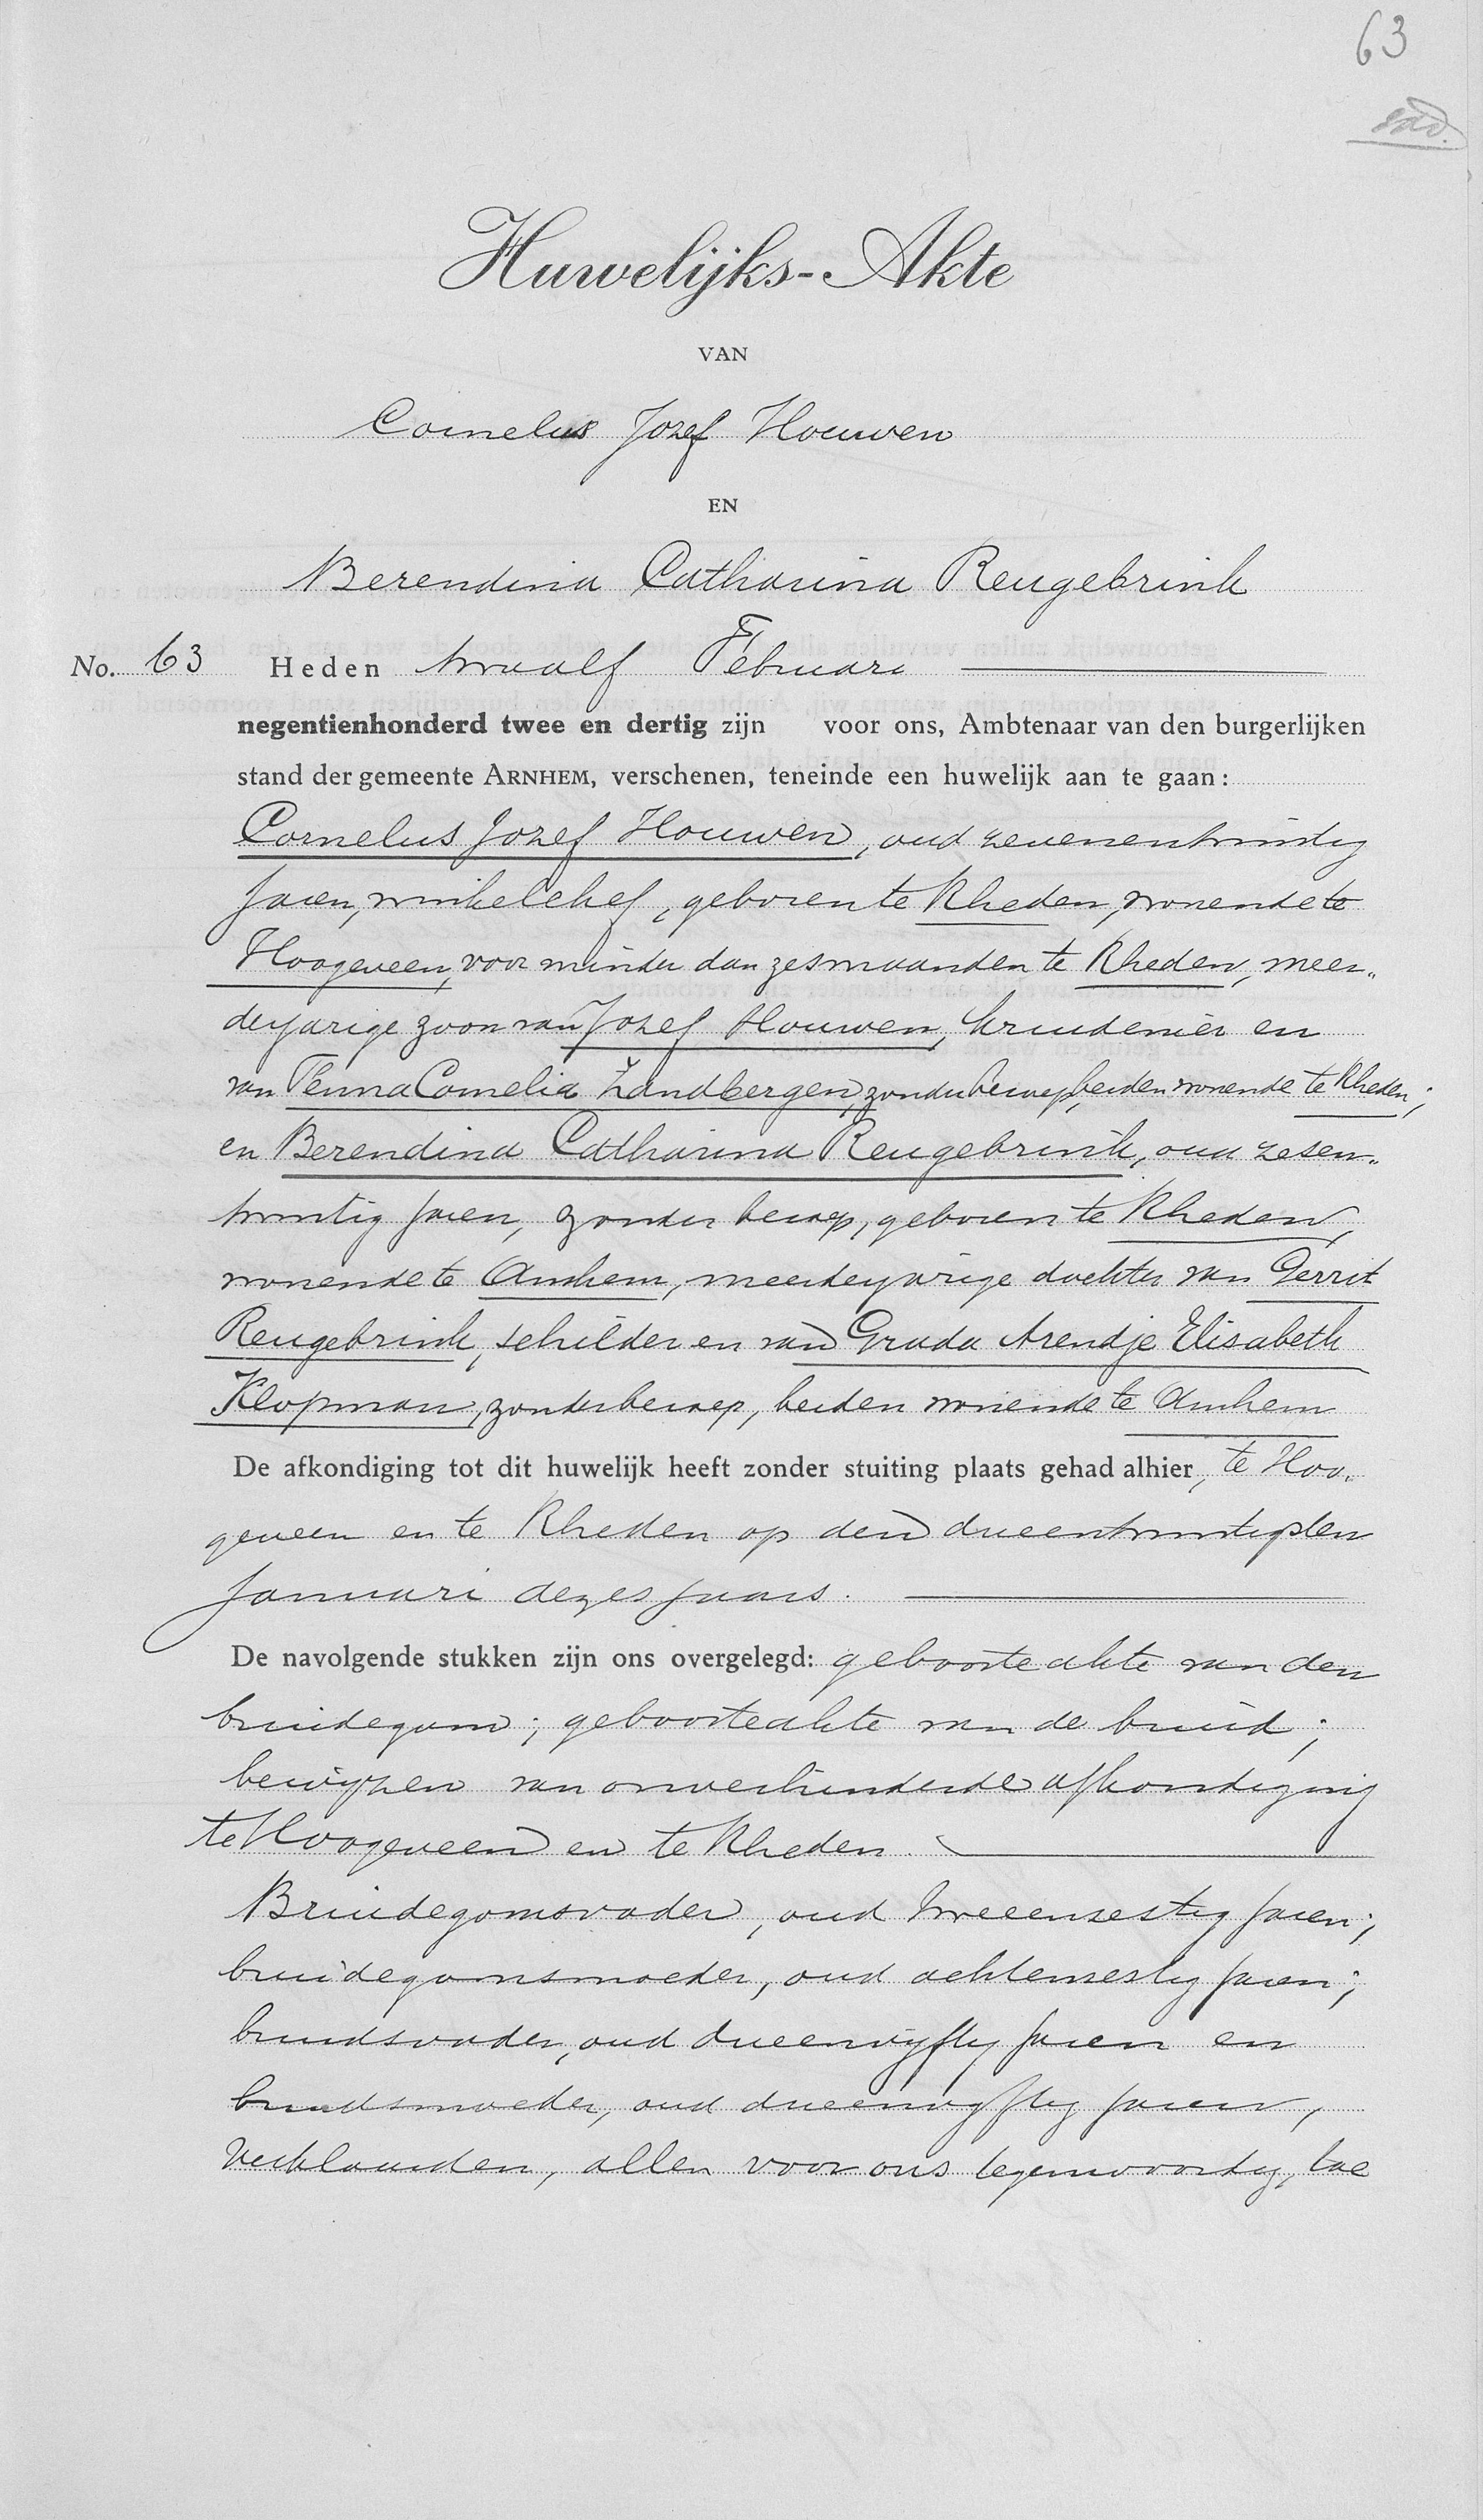 63
Huwelijks-Akte
VAN
Cornelus Jozef Houwen
EN
Berendina Catharina Reugebrink
No. 63 Heden twaalf Februari
negentienhonderd twee en dertig zijn voor ons, Ambtenaar van den burgerlijken
stand der gemeente ARNHEM, verschenen, teneinde een huwelijk aan te gaan:
Cornelus Jozef Houwen, oud zevenentwintig
jaren, winkelchef, geboren te Rheden, wonende te
Hoogeveen, voor minder dan zesmaanden te Rheden, meer„
derjarige zoon van Jozef Houwen, kruidenier en
van Tenna Cornelia Zandbergen, zonder beroep, beiden wonende te Rheden;
en Berendina Catharina Reugebrink, oud zesen„
twintig jaren, zonder beroep, geboren te Rheden,
wonende te Arnhem, meerderjarige dochter van Gerrit
Reugebrink, schilder en van Grada Arendje Elisabeth
Klopman, zonder beroep, beiden wonende te Arnhem
De afkondiging tot dit huwelijk heeft zonder stuiting plaats gehad alhier, te Hoo„
geveen en te Rheden op den drieentwintigsten
Januari dezes jaars.
De navolgende stukken zijn ons overgelegd: geboorteakte van den
bruidegom; geboorteakte van de bruid;
bewijzen van onverhinderde afkondiging
te Hoogeveen en te Rheden.
Bruidegomsvader, oud tweeenzestig jaren;
bruidegomsmoeder, oud achtenzestig jaren;
bruidsvader, oud drieenvijftig jaren en
bruidsmoeder, oud drieenvijftig jaren,
verklaarden, allen voor ons tegenwoordig, toe